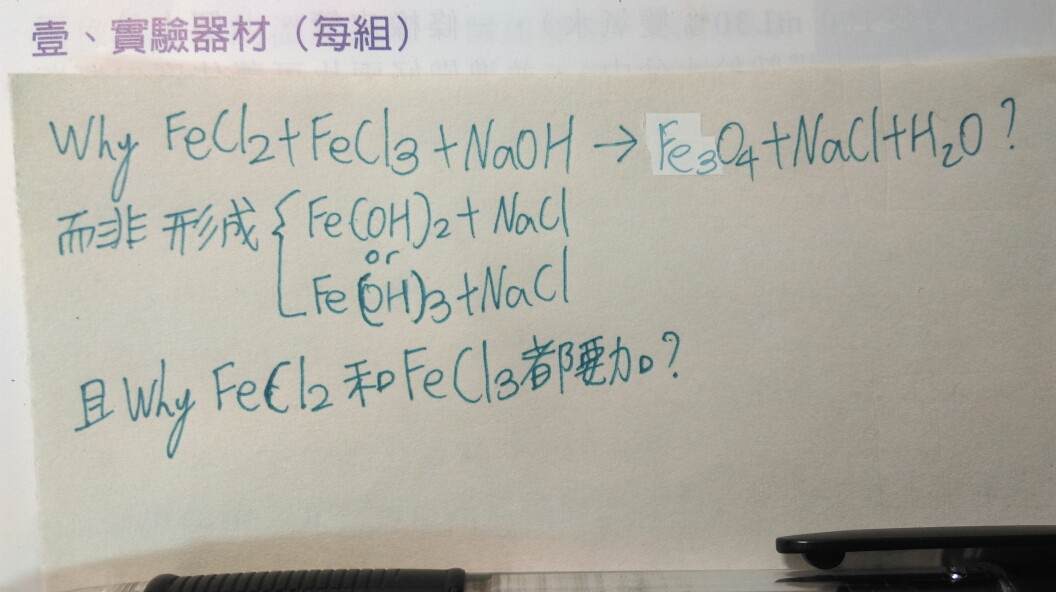 壹、實驗器材（每組）
Why FeCl2+FeCl3+NaOH → Fe3O4+NaCl+H2O?
而非 形成 { Fe(OH)2 + NaCl
or
Fe(OH)3+NaCl
且 Why FeCl2 和 FeCl3 都要加?